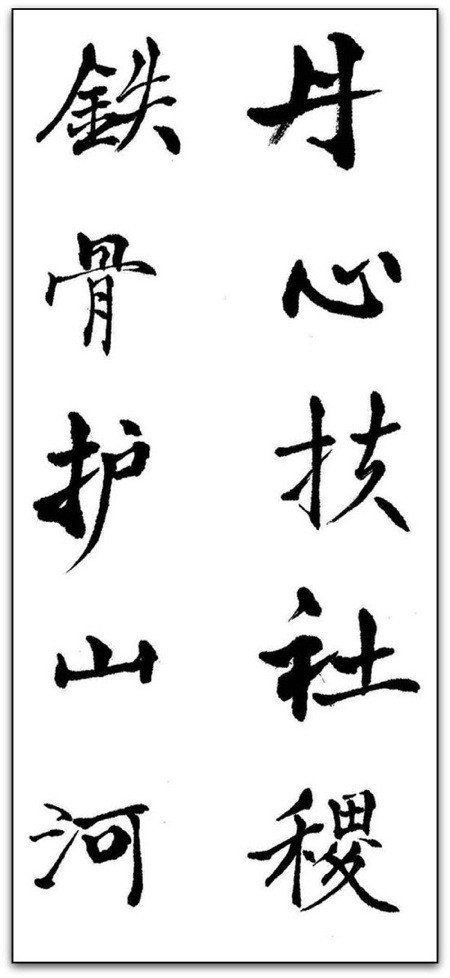 丹心扶社稷
鉄骨护山河